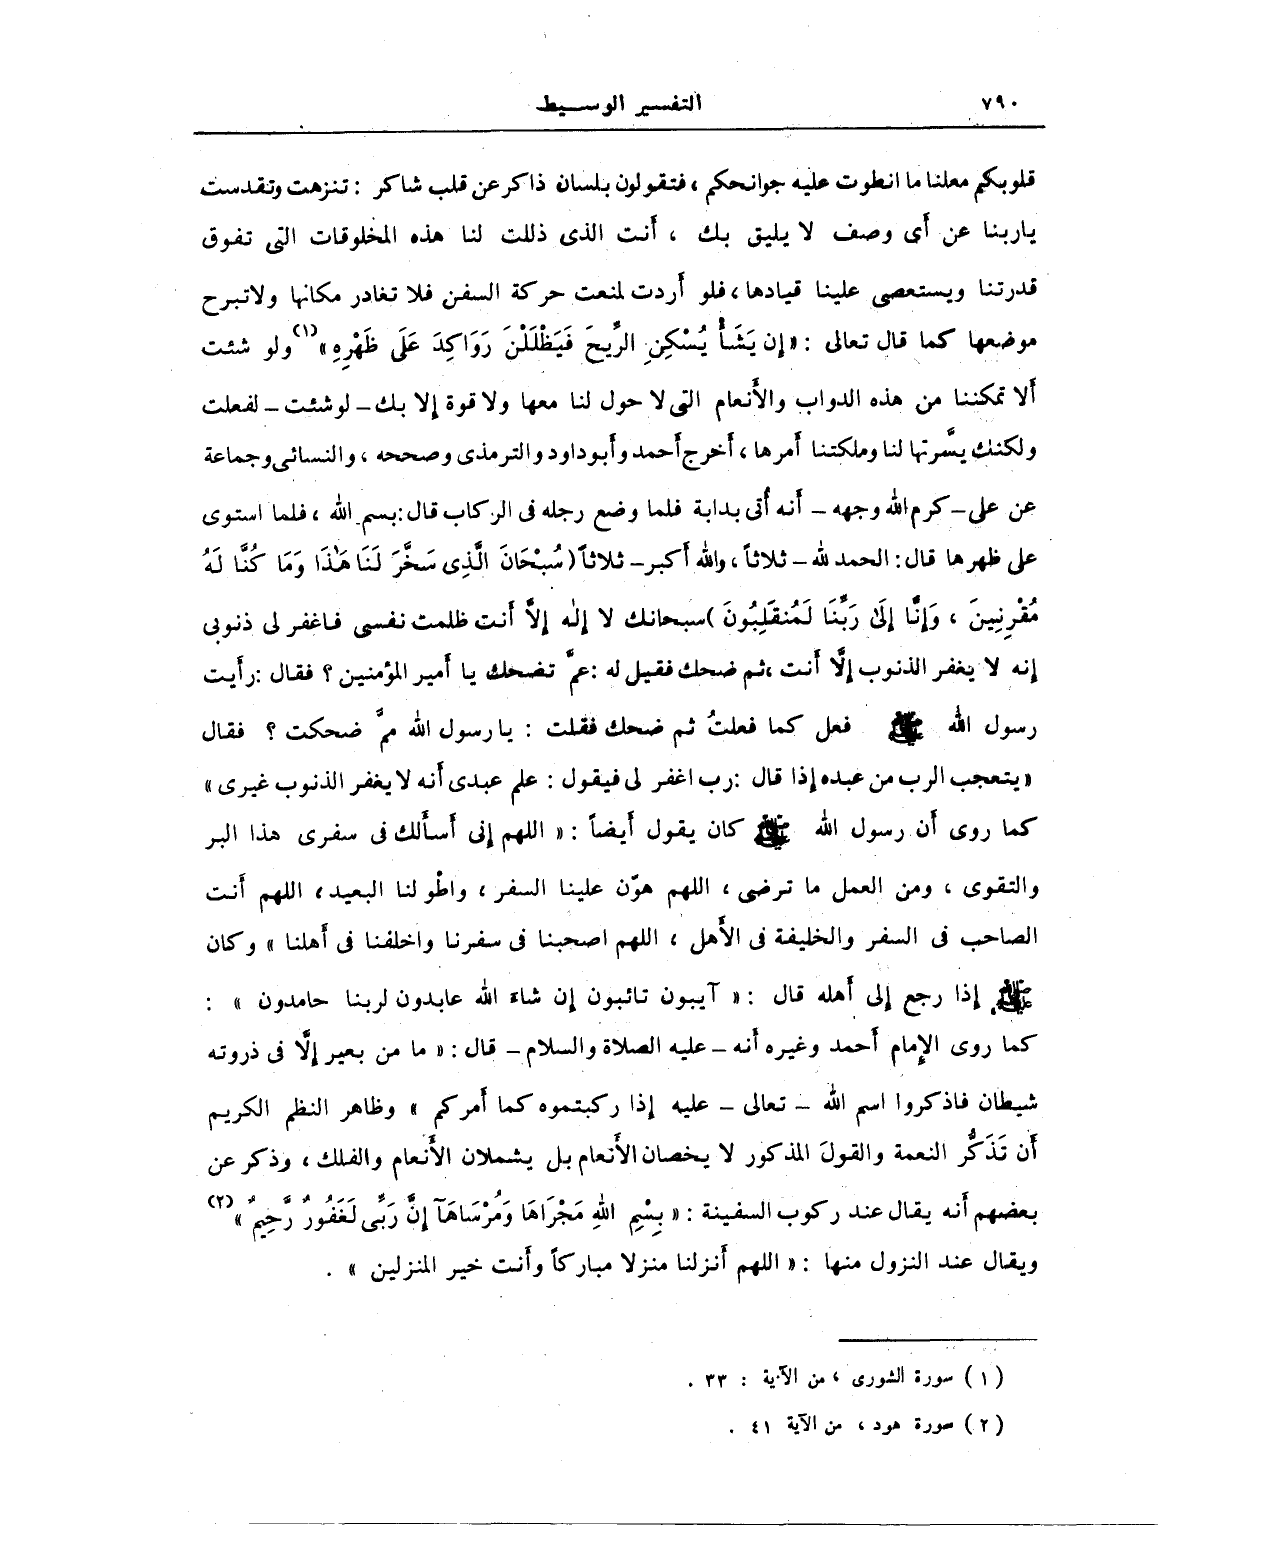 ٧٩٠
التفسير الوسيط
قلوبكم معلنا ما انطوت عليه جوانحكم ، فتقولون بلسان ذاكر عن قلب شاكر : تنزهت وتقدست
ياربنا عن أى وصف لا يليق بك ، أنت الذى ذللت لنا هذه المخلوقات التى تفوق
قدرتنا ويستعصى علينا قيادها ، فلو أردت لمنعت حركة السفن فلا تغادر مكانها ولاتبرح
موضعها كما قال تعالى : « إِن يَشَأْ يُسْكِنِ الرِّيحَ فَيَظْلَلْنَ رَوَاكِدَ عَلَى ظَهْرِهِ »(١) ولو شئت
ألا تمكننا من هذه الدواب والأنعام التى لا حول لنا معها ولا قوة إلا بك – لو شئت – لفعلت
ولكنك يسَّرتها لنا وملكتنا أمرها ، أخرج أحمد وأبوداود والترمذى وصححه ، والنسائى وجماعة
عن على – كرم الله وجهه – أنه أُتى بدابة فلما وضع رجله فى الركاب قال : بسم الله ، فلما استوى
على ظهرها قال : الحمد لله – ثلاثاً ، والله أكبر – ثلاثاً ( سُبْحَانَ الَّذِى سَخَّرَ لَنَا هَٰذَا وَمَا كُنَّا لَهُ
مُقْرِنِينَ ، وَإِنَّا إِلَىٰ رَبِّنَا لَمُنقَلِبُونَ ) سبحانك لا إلٰه إلاَّ أنت ظلمت نفسى فاغفر لى ذنوبى
إنه لا يغفر الذنوب إلَّا أنت ، ثم ضحك فقيل له : عمَّ تضحك يا أمير المؤمنين ؟ فقال : رأيت
رسول الله ﷺ فعل كما فعلتُ ثم ضحك فقلت : يا رسول الله ممَّ ضحكت ؟ فقال
« يتعجب الرب من عبده إذا قال : رب اغفر لى فيقول : علم عبدى أنه لا يغفر الذنوب غيرى »
كما روى أن رسول الله ﷺ كان يقول أيضاً : « اللهم إنى أسألك فى سفرى هذا البر
والتقوى ، ومن العمل ما ترضى ، اللهم هوّن علينا السفر ، واطْو لنا البعيد ، اللهم أنت
الصاحب فى السفر والخليفة فى الأهل ، اللهم اصحبنا فى سفرنا واخلفنا فى أهلنا » وكان
ﷺ إذا رجع إلى أهله قال : « آيبون تائبون إن شاء الله عابدون لربنا حامدون » :
كما روى الإمام أحمد وغيره أنه – عليه الصلاة والسلام – قال : « ما من بعير إلَّا فى ذروته
شيطان فاذكروا اسم الله – تعالى – عليه إذا ركبتموه كما أمركم » وظاهر النظم الكريم
أن تَذَكُّر النعمة والقولَ المذكور لا يخصان الأنعام بل يشملان الأنعام والفلك ، وذكر عن
بعضهم أنه يقال عند ركوب السفينة : « بِسْمِ اللهِ مَجْرَاهَا وَمُرْسَاهَآ إِنَّ رَبِّى لَغَفُورٌ رَّحِيمٌ »(٢)
ويقال عند النزول منها : « اللهم أنزلنا منزلا مباركاً وأنت خير المنزلين » .
(١) سورة الشورى ، من الآية : ٣٣ .
(٢) سورة هود ، من الآية ٤١ .